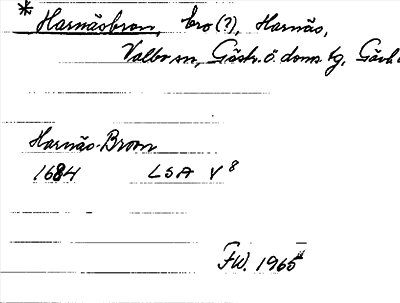 * Harnäsbron, bro (?), Harnäs,
Valbo sn, Gästr. ö. doms tg, Gävl.
Harnäs-Broon
1684 LSA V 8
FW. 1965